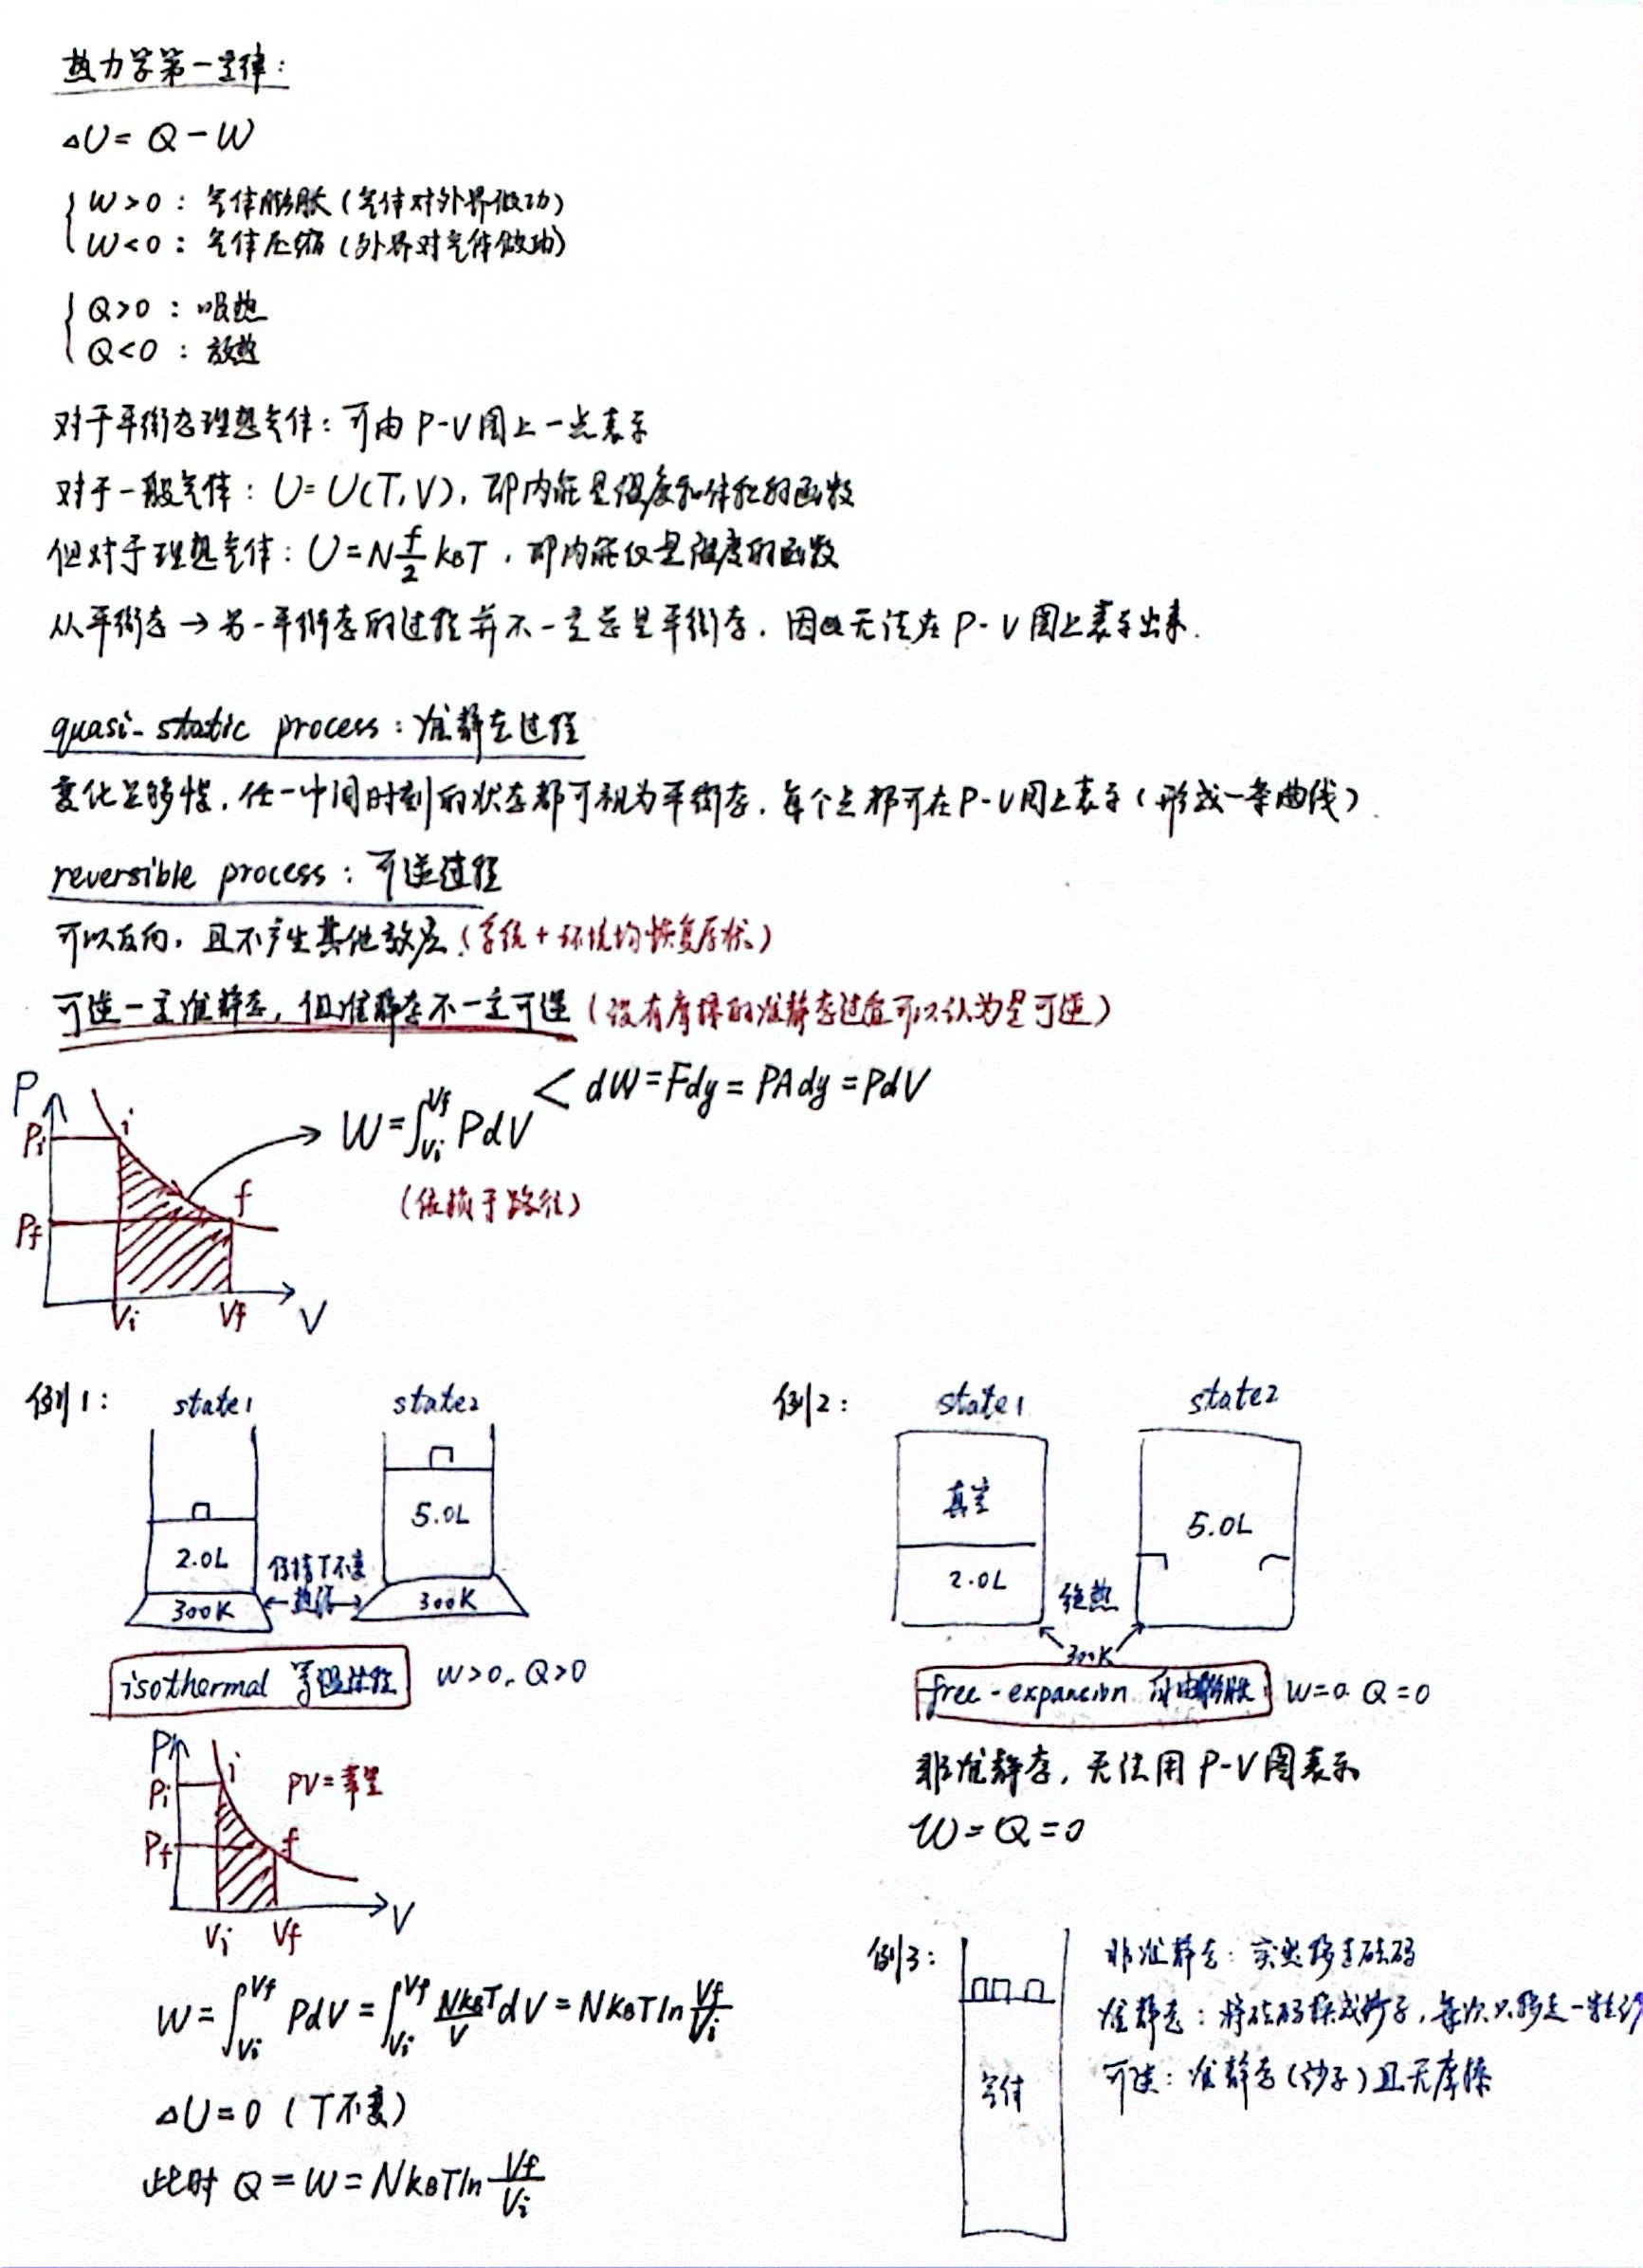 热力学第一定律：
△U = Q − W
W>0：气体膨胀（气体对外界做功）
W<0：气体压缩（外界对气体做功）
Q>0：吸热
Q<0：放热
对于平衡态理想气体：可由P-V图上一点表示
对于一般气体：U=U(T,V)，即内能是温度和体积的函数
但对于理想气体：U=N f/2 kBT，即内能仅是温度的函数
从平衡态→另一平衡态的过程并不一定总是平衡态，因此无法在P-V图上表示出来.
quasi-static process：准静态过程
变化足够慢，任一中间时刻的状态都可视为平衡态，每个点都可在P-V图上表示（形成一条曲线）.
reversible process：可逆过程
可以反向，且不产生其他效应.（系统+环境均恢复原状）
可逆一定准静态，但准静态不一定可逆（没有摩擦的准静态过程可以认为是可逆）
P
Pi
i
Pf
f
Vi
Vf
V
W=∫ViVf PdV < dW=Fdy=PAdy=PdV
（依赖于路径）
例1：
state1
state2
2.0L
5.0L
保持T不变
300K
←热源→
300K
isothermal 等温过程
W>0，Q>0
P
Pi
i
PV=常量
Pf
f
Vi
Vf
V
W=∫ViVf PdV=∫ViVf NkBT/V dV=NkBTln Vf/Vi
△U=0（T不变）
此时 Q=W=NkBTln Vf/Vi
例2：
state1
state2
真空
2.0L
5.0L
绝热
300K
free-expansion 自由膨胀
W=0 Q=0
非准静态，无法用P-V图表示
W=Q=0
例3：
气体
非准静态：突然移走砝码
准静态：将砝码换成沙子，每次只移走一粒沙
可逆：准静态（沙子）且无摩擦